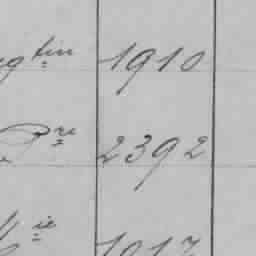 tin 1910
Pre 2392
ie 1917